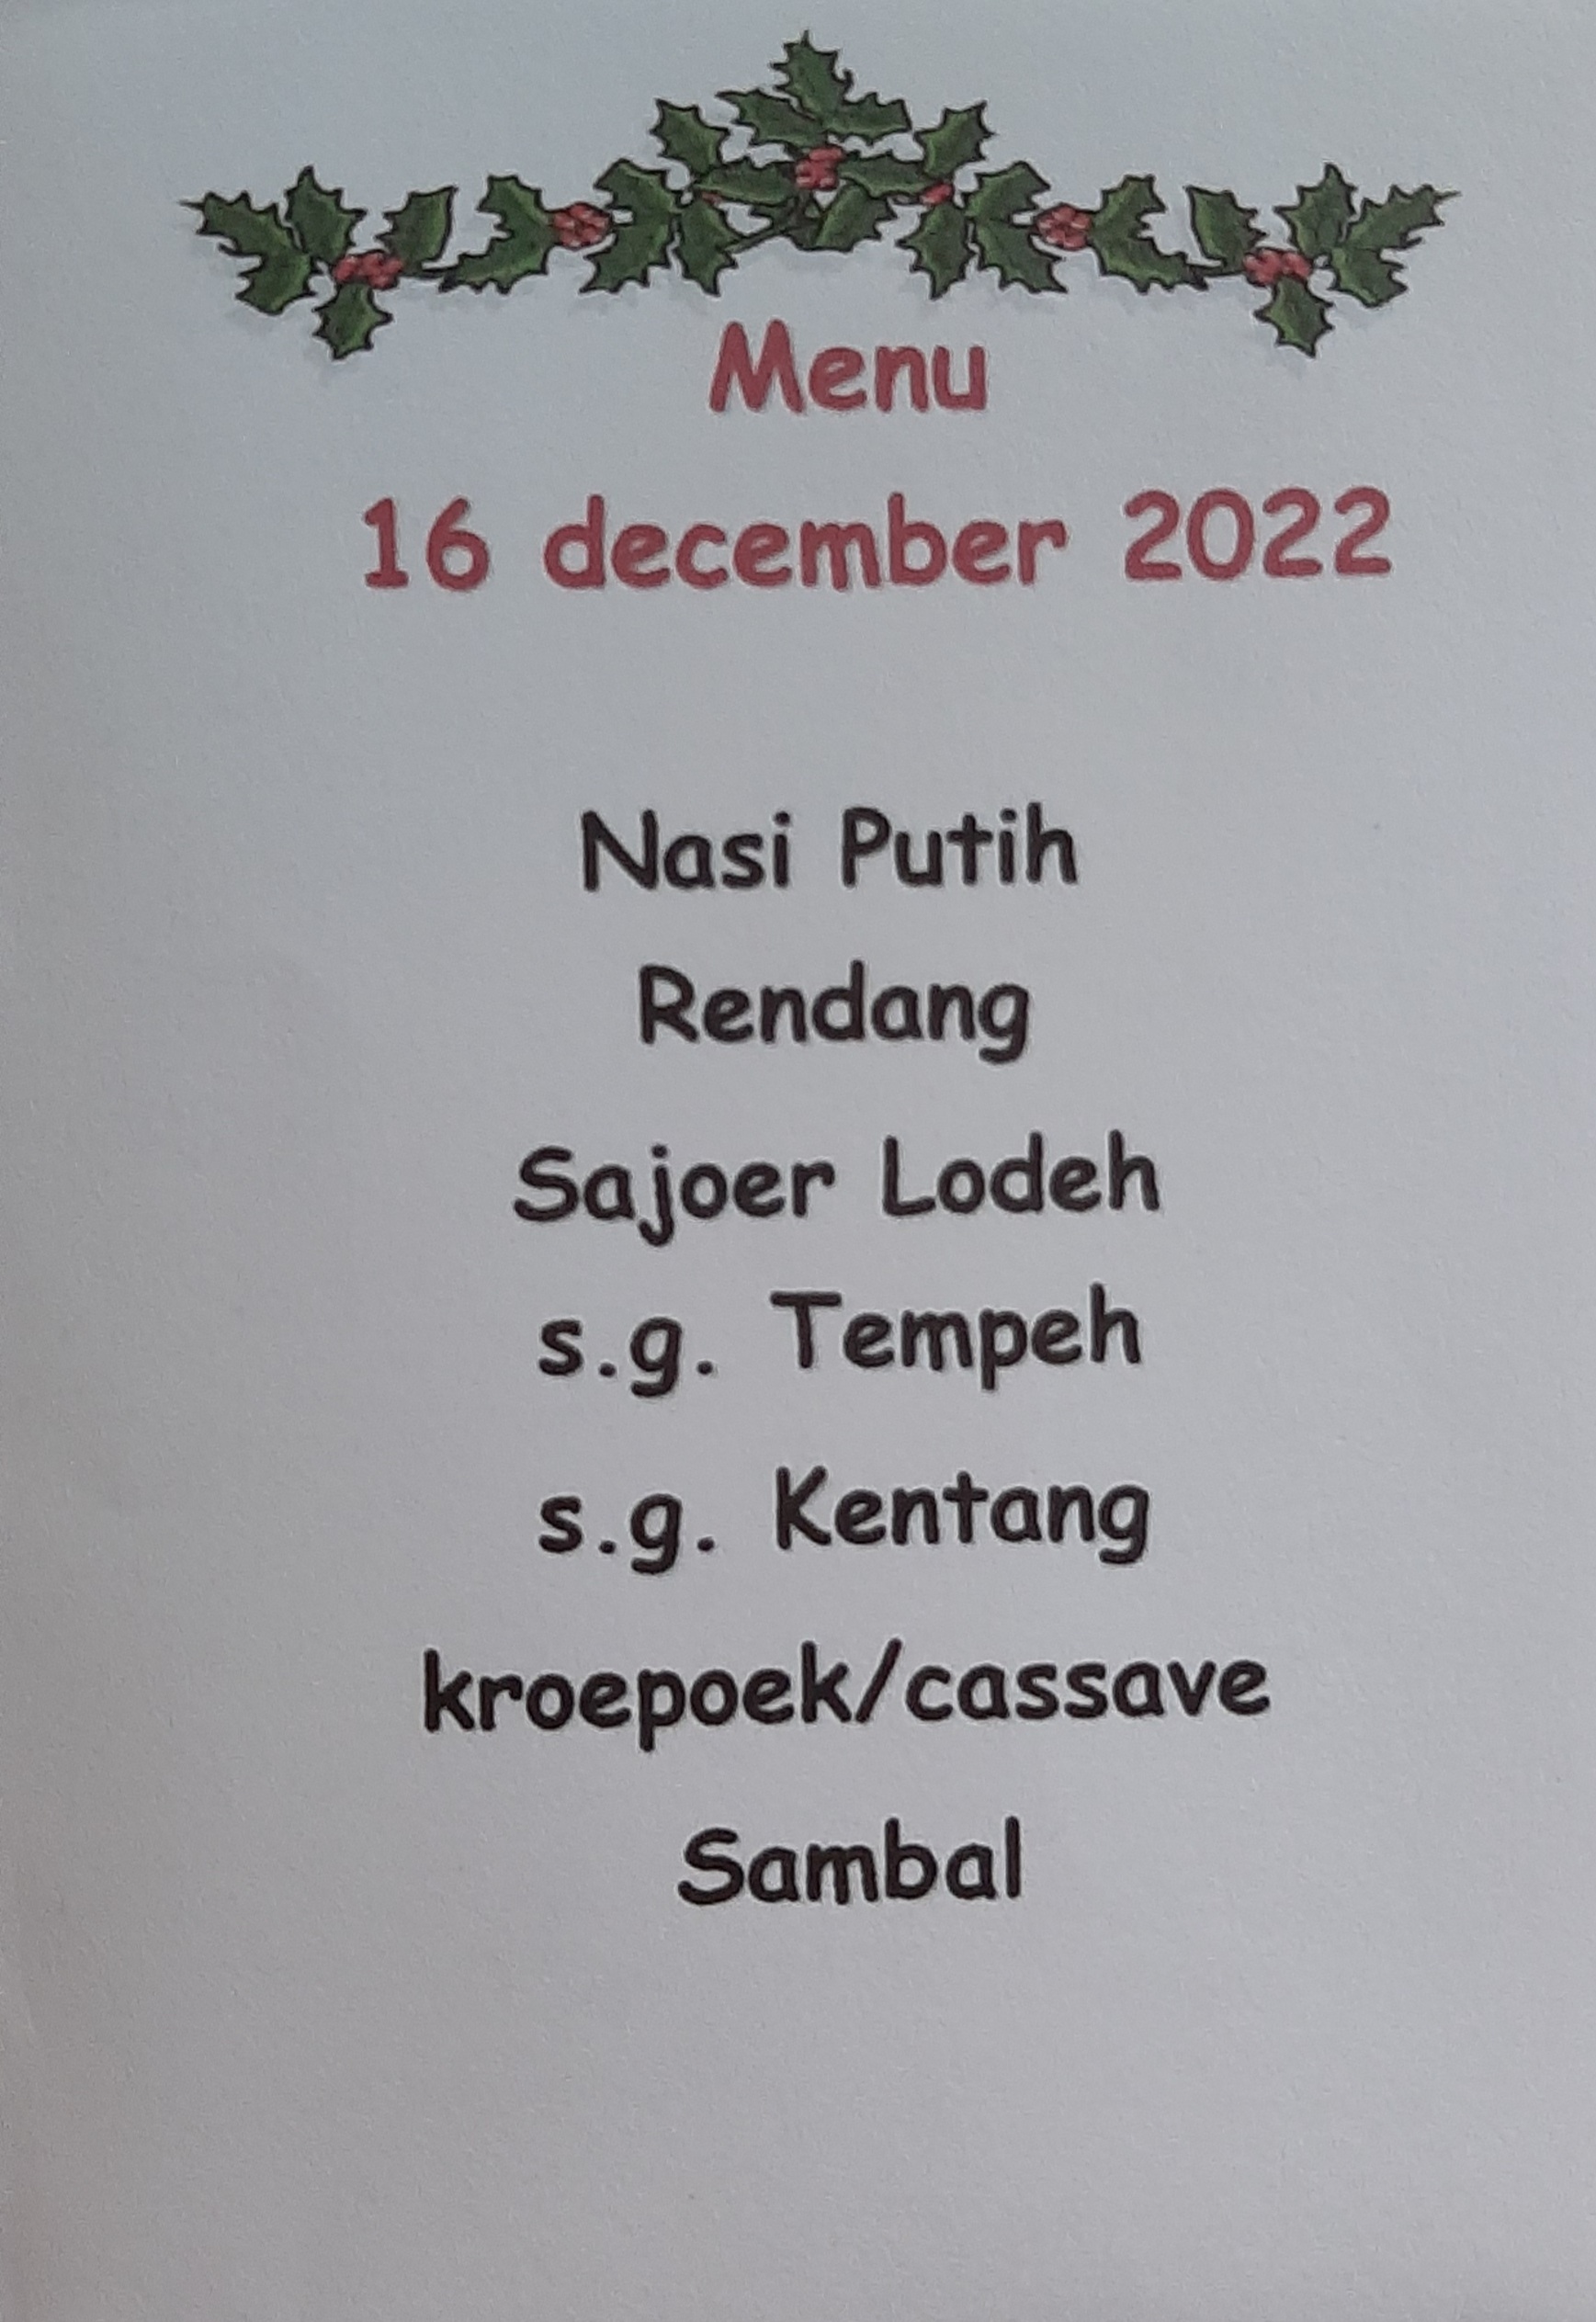 Menu
16 december 2022
Nasi Putih
Rendang
Sajoer Lodeh
s.g. Tempeh
s.g. Kentang
kroepoek/cassave
Sambal